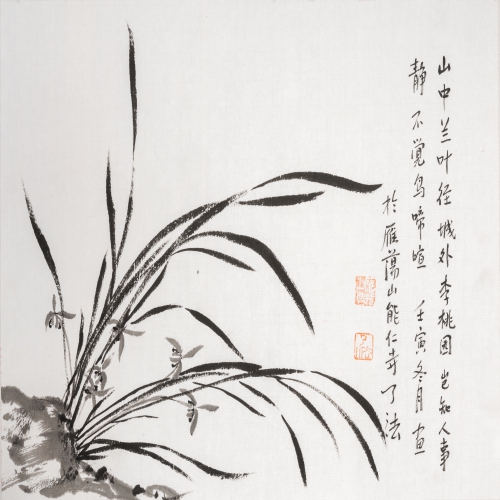 山中兰叶径城外李桃园岂知人事
静不觉鸟啼喧 壬寅冬月画
于雁荡山能仁寺了法